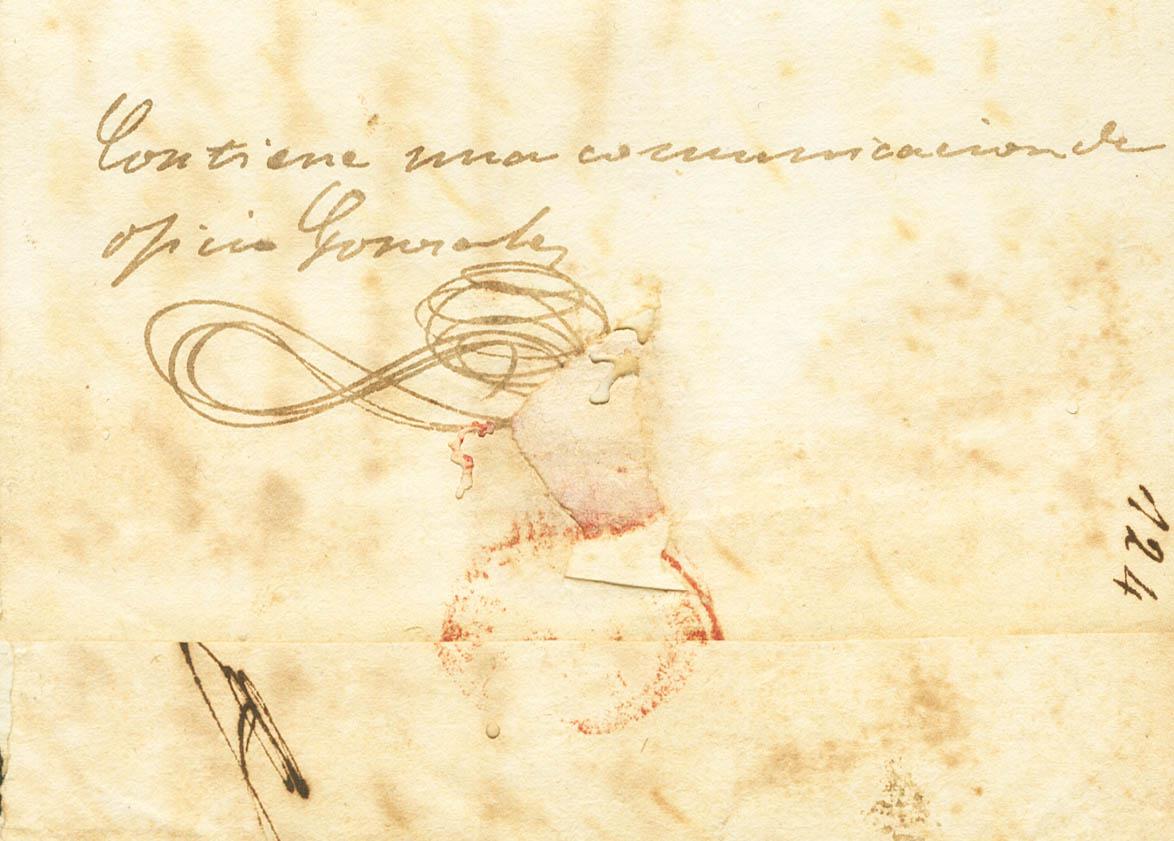 Contiene una comunicacion de
oficio Gonzalez
724